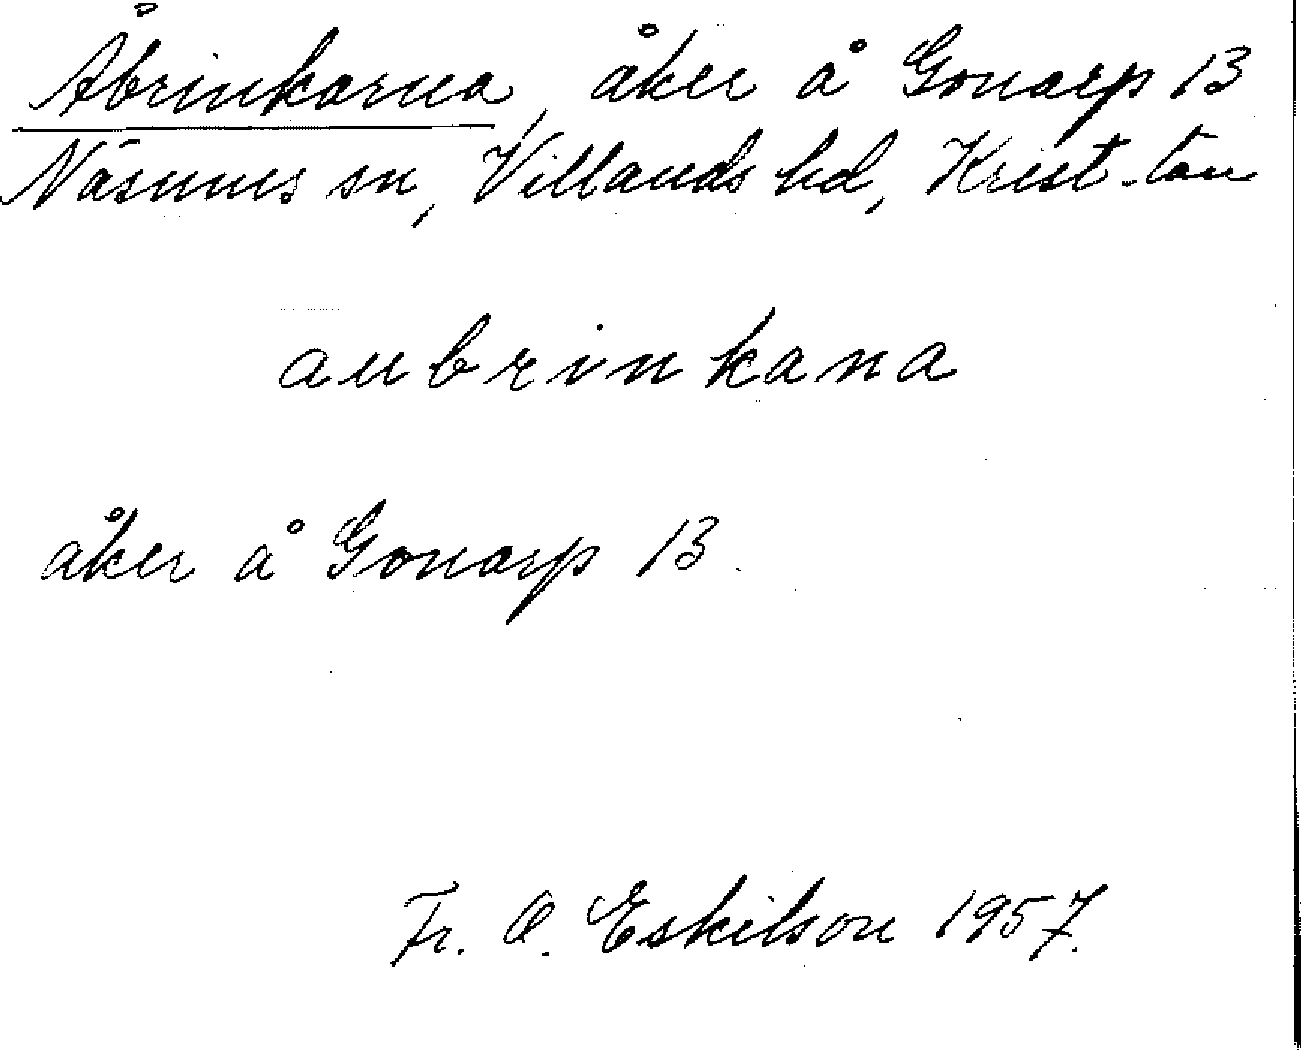 Åbrinkarna, åker å Gonarp 13
Näsums sn, Villands hd, Krist-ton
aubrinkana
åker å Gonarp 13.
Fr. O. Eskilson 1957.